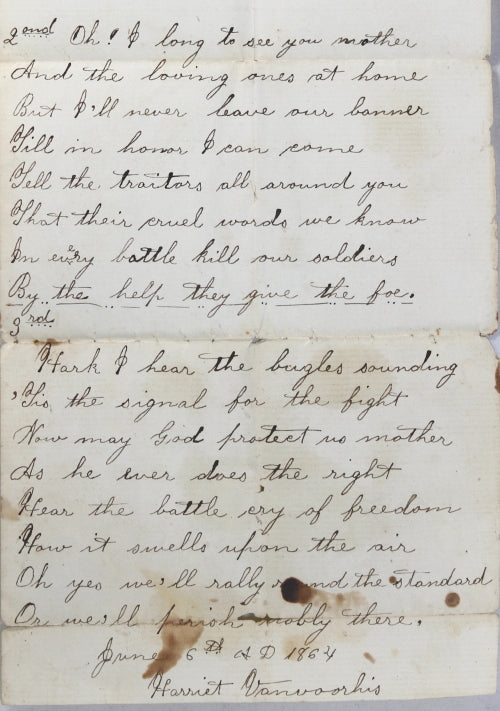 2end Oh! I long to see you mother
And the loving ones at home
But I'll never leave our banner
Till in honor I can come
Tell the traitors all around you
That their cruel words we know
In every battle kill our soldiers
By the help they give the foe.
3rd
Hark I hear the bugles sounding
'Tis the signal for the fight
Now may God protect us mother
As he ever does the right
Hear the battle cry of freedom
How it swells upon the air
Oh yes we'll rally round the standard
Or we'll perish nobly there.
June 6th A D 1864
Harriet Vanvoorhis